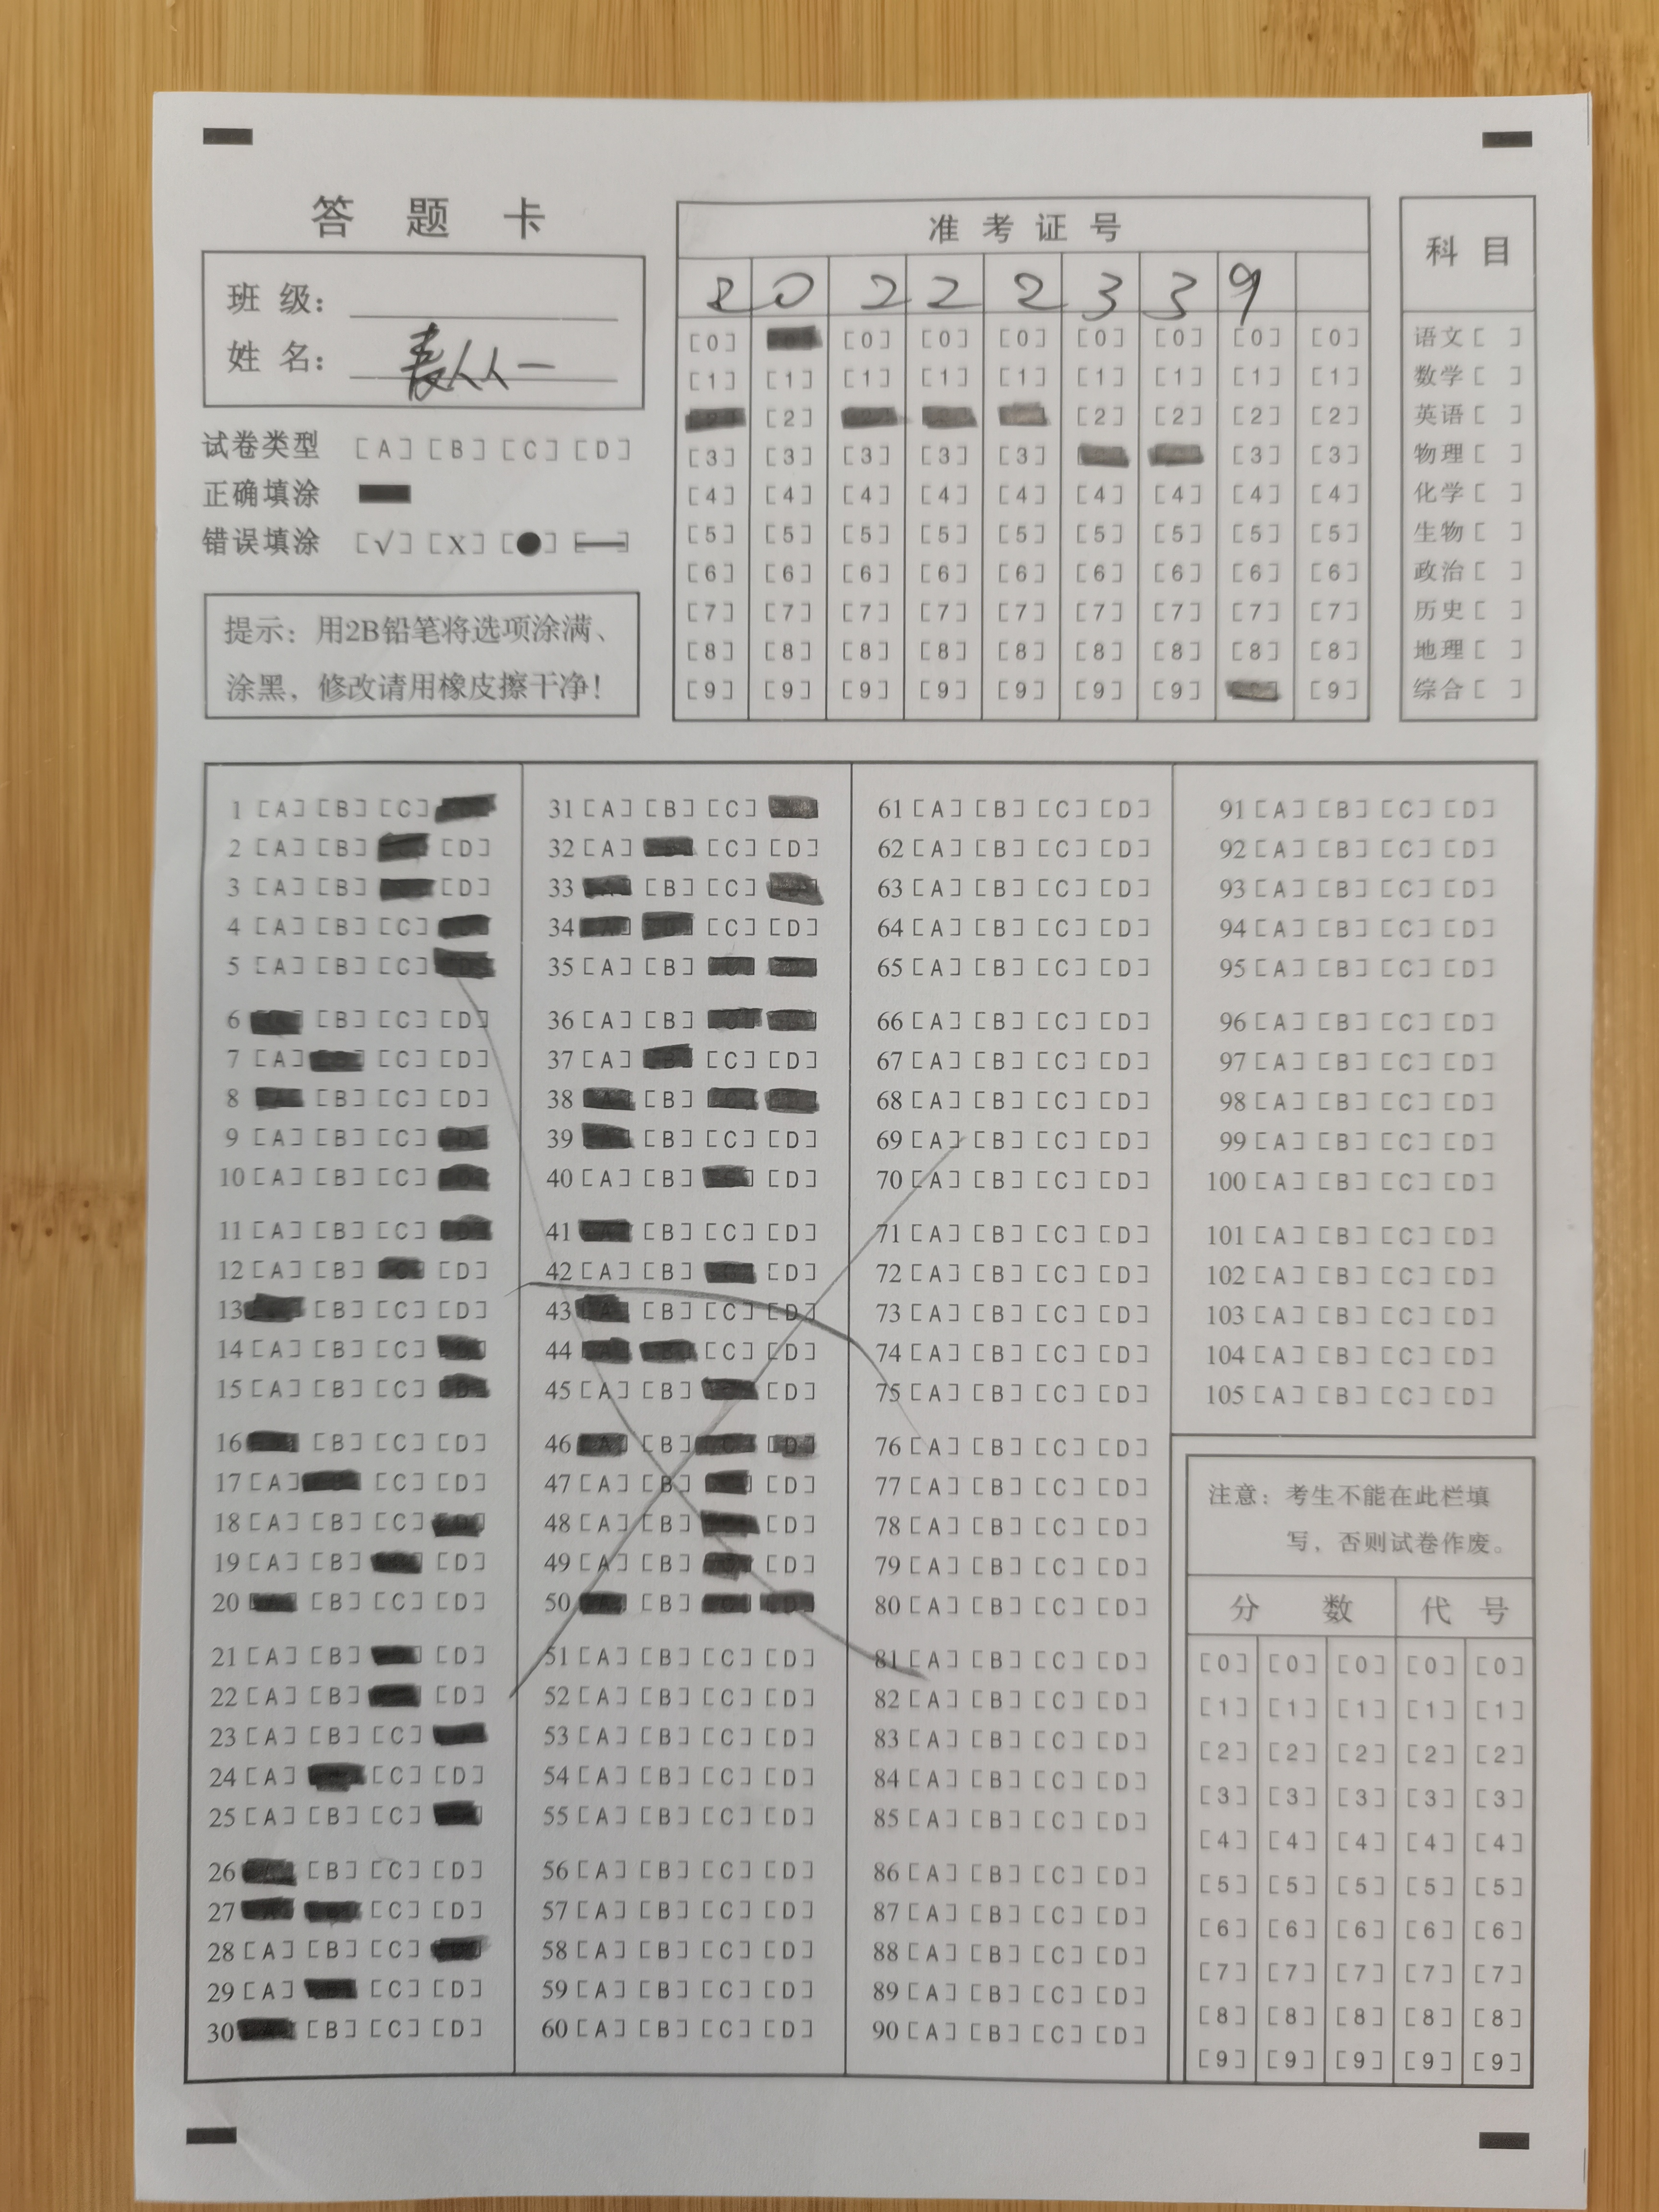 答 题 卡
班 级:
姓 名: 袁人人一
试卷类型 [A] [B] [C] [D]
正确填涂
错误填涂 [√] [X] [●] [—]
提示: 用2B铅笔将选项涂满、
涂黑, 修改请用橡皮擦干净!
准 考 证 号
2 0 2 2 2 3 3 9
[0] [0] [0] [0] [0] [0] [0] [0]
[1] [1] [1] [1] [1] [1] [1] [1] [1]
[2] [2] [2] [2] [2]
[3] [3] [3] [3] [3] [3] [3]
[4] [4] [4] [4] [4] [4] [4] [4] [4]
[5] [5] [5] [5] [5] [5] [5] [5] [5]
[6] [6] [6] [6] [6] [6] [6] [6] [6]
[7] [7] [7] [7] [7] [7] [7] [7] [7]
[8] [8] [8] [8] [8] [8] [8] [8] [8]
[9] [9] [9] [9] [9] [9] [9] [9]
科 目
语文 [ ]
数学 [ ]
英语 [ ]
物理 [ ]
化学 [ ]
生物 [ ]
政治 [ ]
历史 [ ]
地理 [ ]
综合 [ ]
1 [A] [B] [C]
2 [A] [B] [D]
3 [A] [B] [D]
4 [A] [B] [C]
5 [A] [B] [C]
6 [B] [C] [D]
7 [A] [C] [D]
8 [B] [C] [D]
9 [A] [B] [C]
10 [A] [B] [C]
11 [A] [B] [C]
12 [A] [B] [D]
13 [B] [C] [D]
14 [A] [B] [C]
15 [A] [B] [C]
16 [B] [C] [D]
17 [A] [C] [D]
18 [A] [B] [C]
19 [A] [B] [D]
20 [B] [C] [D]
21 [A] [B] [D]
22 [A] [B] [D]
23 [A] [B] [C]
24 [A] [C] [D]
25 [A] [B] [C]
26 [B] [C] [D]
27 [C] [D]
28 [A] [B] [C]
29 [A] [C] [D]
30 [B] [C] [D]
31 [A] [B] [C]
32 [A] [C] [D]
33 [B] [C]
34 [C] [D]
35 [A] [B]
36 [A] [B]
37 [A] [C] [D]
38 [B]
39 [B] [C] [D]
40 [A] [B] [D]
41 [B] [C] [D]
42 [A] [B] [D]
43 [B] [C] [D]
44 [C] [D]
45 [A] [B] [D]
46 [B]
47 [A] [B] [D]
48 [A] [B] [D]
49 [A] [B] [D]
50 [B]
51 [A] [B] [C] [D]
52 [A] [B] [C] [D]
53 [A] [B] [C] [D]
54 [A] [B] [C] [D]
55 [A] [B] [C] [D]
56 [A] [B] [C] [D]
57 [A] [B] [C] [D]
58 [A] [B] [C] [D]
59 [A] [B] [C] [D]
60 [A] [B] [C] [D]
61 [A] [B] [C] [D]
62 [A] [B] [C] [D]
63 [A] [B] [C] [D]
64 [A] [B] [C] [D]
65 [A] [B] [C] [D]
66 [A] [B] [C] [D]
67 [A] [B] [C] [D]
68 [A] [B] [C] [D]
69 [A] [B] [C] [D]
70 [A] [B] [C] [D]
71 [A] [B] [C] [D]
72 [A] [B] [C] [D]
73 [A] [B] [C] [D]
74 [A] [B] [C] [D]
75 [A] [B] [C] [D]
76 [A] [B] [C] [D]
77 [A] [B] [C] [D]
78 [A] [B] [C] [D]
79 [A] [B] [C] [D]
80 [A] [B] [C] [D]
81 [A] [B] [C] [D]
82 [A] [B] [C] [D]
83 [A] [B] [C] [D]
84 [A] [B] [C] [D]
85 [A] [B] [C] [D]
86 [A] [B] [C] [D]
87 [A] [B] [C] [D]
88 [A] [B] [C] [D]
89 [A] [B] [C] [D]
90 [A] [B] [C] [D]
91 [A] [B] [C] [D]
92 [A] [B] [C] [D]
93 [A] [B] [C] [D]
94 [A] [B] [C] [D]
95 [A] [B] [C] [D]
96 [A] [B] [C] [D]
97 [A] [B] [C] [D]
98 [A] [B] [C] [D]
99 [A] [B] [C] [D]
100 [A] [B] [C] [D]
101 [A] [B] [C] [D]
102 [A] [B] [C] [D]
103 [A] [B] [C] [D]
104 [A] [B] [C] [D]
105 [A] [B] [C] [D]
注意: 考生不能在此栏填
写, 否则试卷作废。
分 数 代 号
[0] [0] [0] [0] [0]
[1] [1] [1] [1] [1]
[2] [2] [2] [2] [2]
[3] [3] [3] [3] [3]
[4] [4] [4] [4] [4]
[5] [5] [5] [5] [5]
[6] [6] [6] [6] [6]
[7] [7] [7] [7] [7]
[8] [8] [8] [8] [8]
[9] [9] [9] [9] [9]